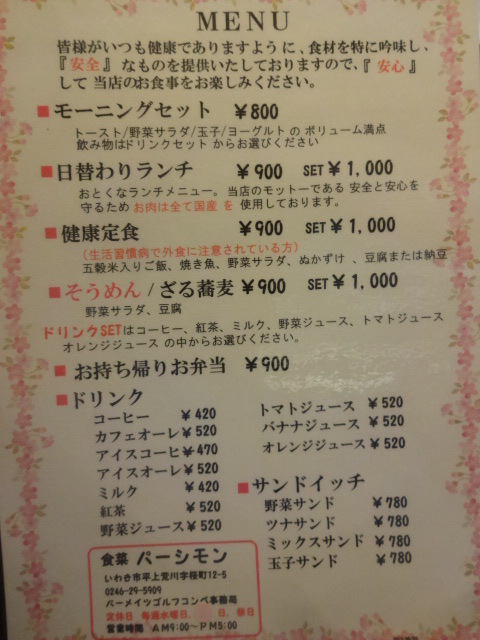 MENU
皆様がいつも健康でありますように、食材を特に吟味し、
『安全』なものを提供いたしておりますので、『安心』
して 当店のお食事をお楽しみください。
■モーニングセット ￥800
トースト/野菜サラダ/玉子/ヨーグルト の ボリューム満点
飲み物はドリンクセット からお選びください
■日替わりランチ ￥900 SET￥1,000
おとくなランチメニュー。 当店のモットーである 安全と安心を
守るため お肉は全て国産 を 使用しております。
■健康定食 ￥900 SET￥1,000
（生活習慣病で外食に注意されている方）
五穀米入りご飯、焼き魚、野菜サラダ、ぬかずけ 、豆腐または納豆
■そうめん / ざる蕎麦 ￥900 SET￥1,000
野菜サラダ、豆腐
ドリンクSETはコーヒー、紅茶、ミルク、野菜ジュース、トマトジュース
オレンジジュース の中からお選びください。
■ お持ち帰りお弁当 ￥900
■ドリンク
コーヒー ￥420
カフェオーレ￥520
アイスコーヒ￥470
アイスオーレ￥520
ミルク ￥420
紅茶 ￥520
野菜ジュース￥520
トマトジュース ￥520
バナナジュース ￥520
オレンジジュース ￥520
■サンドイッチ
野菜サンド ￥780
ツナサンド ￥780
ミックスサンド ￥780
玉子サンド ￥780
食菜 パーシモン
いわき市平上荒川字桜町12-5
0246-29-5909
パーメイツゴルフコンペ事務局
定休日 毎週水曜日、 日、祭日
営業時間 AM9:00～PM5:00